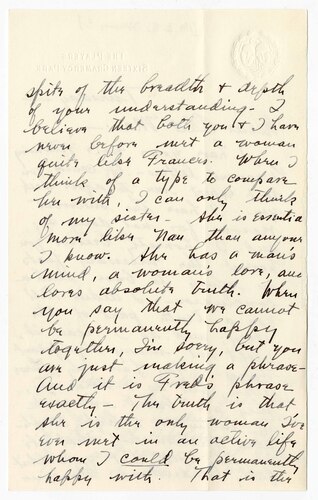 THE PLAYERS
SIXTEEN GRAMERCY PARK
spite of the breadth & depth
of your understanding - I
believe that both you & I have
never before met a woman
quite like Frances. When I
think of a type to compare
her with, I can only think
of my sister - She is essential
more like Nan than anyone
I know. She has a man's
mind, a woman's love, and
loves absolute truth. When
you say that we cannot
be permanently happy
together, I'm sorry, but you
are just making a phrase -
And it is Fred's phrase
exactly - The truth is that
she is the only woman I've
ever met in an active life
whom I could be permanently
happy with. That is the